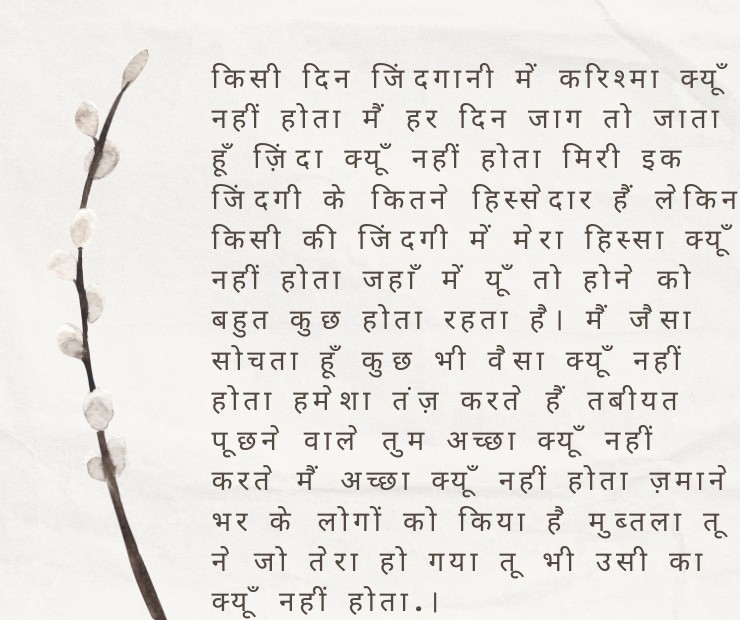 किसी दिन जिंदगानी में करिश्मा क्यूँ
नहीं होता मैं हर दिन जाग तो जाता
हूँ ज़िंदा क्यूँ नहीं होता मिरी इक
जिंदगी के कितने हिस्सेदार हैं लेकिन
किसी की जिंदगी में मेरा हिस्सा क्यूँ
नहीं होता जहाँ में यूँ तो होने को
बहुत कुछ होता रहता है| मैं जैसा
सोचता हूँ कुछ भी वैसा क्यूँ नहीं
होता हमेशा तंज़ करते हैं तबीयत
पूछने वाले तुम अच्छा क्यूँ नहीं
करते मैं अच्छा क्यूँ नहीं होता ज़माने
भर के लोगों को किया है मुब्तला तू
ने जो तेरा हो गया तू भी उसी का
क्यूँ नहीं होता.|